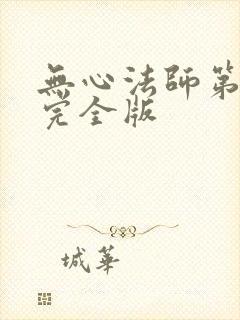 無心法師第
完全版
城華